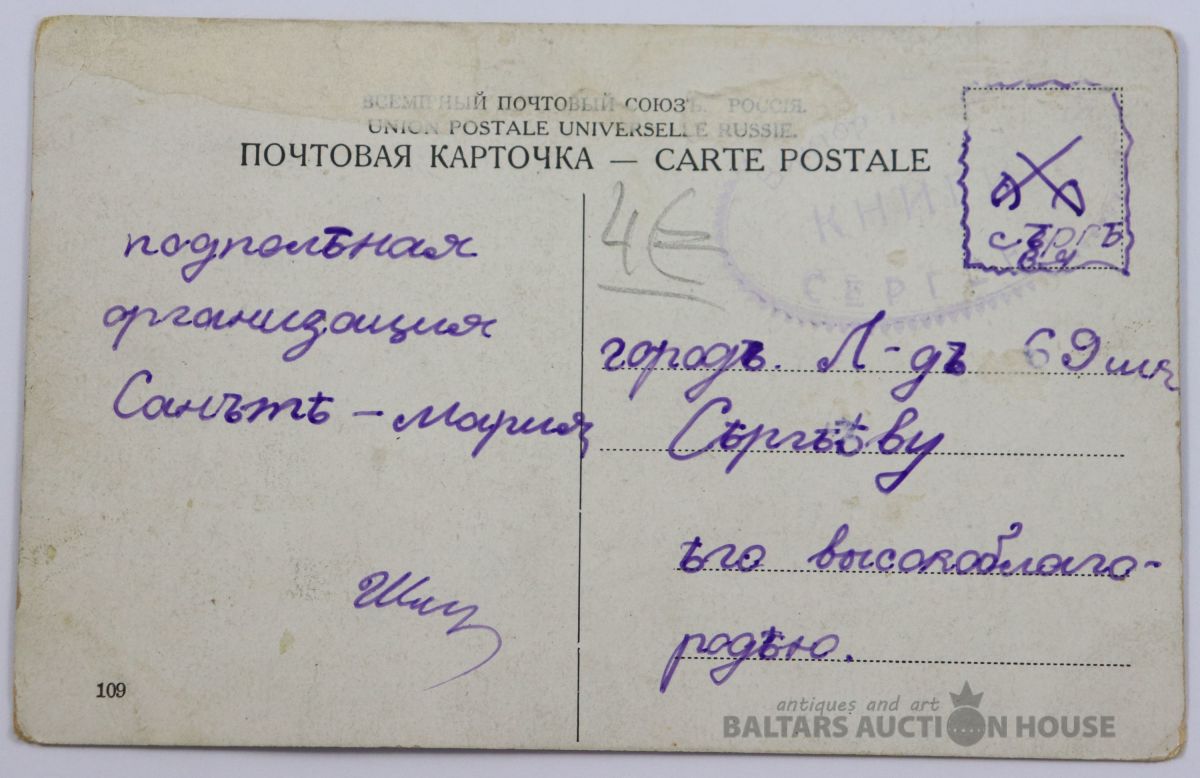 ВСЕМІРНЫЙ ПОЧТОВЫЙ СОЮЗЪ. РОССІЯ.
UNION POSTALE UNIVERSELLE RUSSIE.
ПОЧТОВАЯ КАРТОЧКА — CARTE POSTALE
подполѣная
организация
Санътѣ – Мария
4€
КНИ
СЕРГ
сѣргѣ
городъ. Л-дъ 69
Сѣргѣѣву
ѣго высокоблаго-
родѣю.
109
antiques and art
BALTARS AUCTION HOUSE